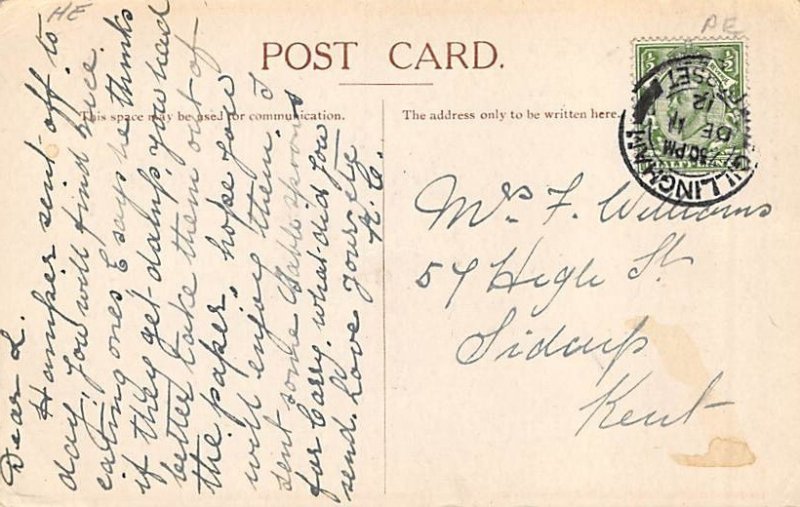 HE
POST CARD.
This space may be used for communication.
The address only to be written here.
Dear L.
Hamper sent off to
day, You will find nice
eating ones E says he thinks
if they get damp, you had
better take them out of
the paper, hope you
will enjoy them. I
sent some
for Carry. what did you
send. Love Yours
Mrs F. Williams
High St
Sidcup
Kent
GILLINGHAM
DORSET
30 PM
DE 11
12
HALFPENNY